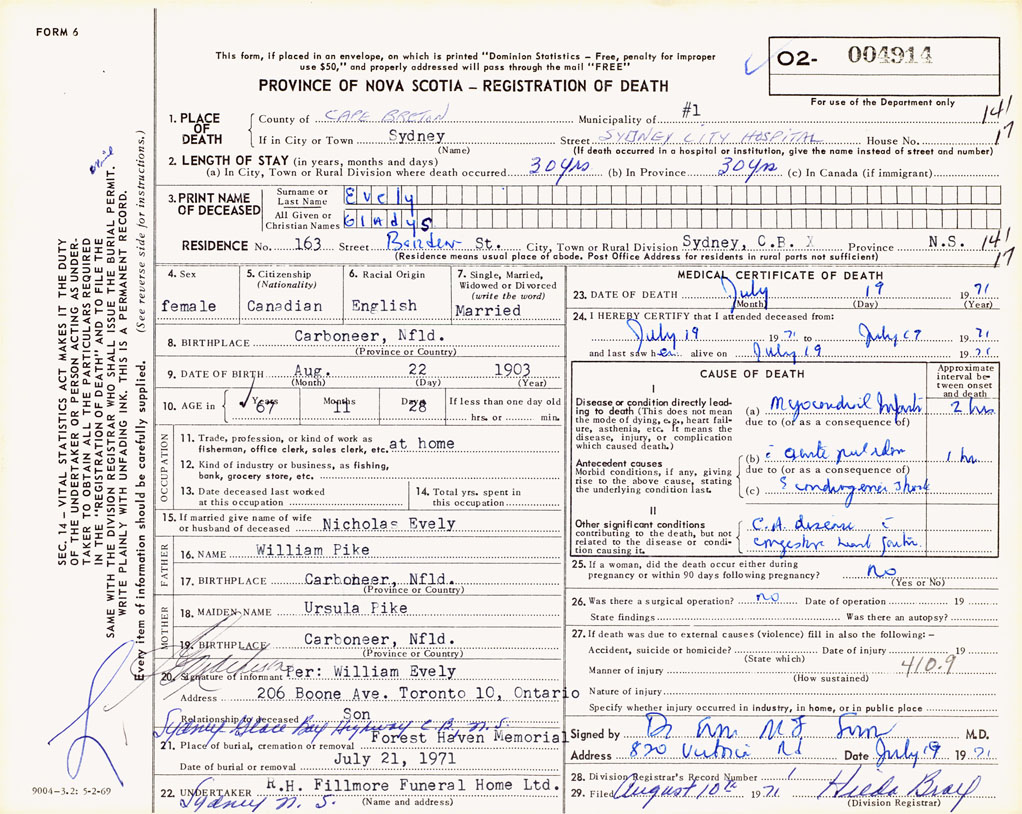 FORM 6
This form, if placed in an envelope, on which is printed "Dominion Statistics – Free, penalty for improper
use $50," and properly addressed will pass through the mail "FREE"
O2- 004914
For use of the Department only
PROVINCE OF NOVA SCOTIA – REGISTRATION OF DEATH
1. PLACE OF DEATH
County of CAPE BRETON Municipality of #1 141
If in City or Town Sydney Street SYDNEY CITY HOSPITAL House No. 17
(Name) (If death occurred in a hospital or institution, give the name instead of street and number)
2. LENGTH OF STAY (in years, months and days)
(a) In City, Town or Rural Division where death occurred 30 yrs (b) In Province 30 yrs (c) In Canada (if immigrant)
3. PRINT NAME OF DECEASED
Surname or Last Name Evely
All Given or Christian Names Gladys
RESIDENCE No. 163 Street Borden St. City, Town or Rural Division Sydney, C.B. X Province N.S. 141
(Residence means usual place of abode. Post Office Address for residents in rural parts not sufficient) 17
4. Sex
female
5. Citizenship (Nationality)
Canadian
6. Racial Origin
English
7. Single, Married, Widowed or Divorced (write the word)
Married
8. BIRTHPLACE Carboneer, Nfld.
(Province or Country)
9. DATE OF BIRTH Aug. 22 1903
(Month) (Day) (Year)
10. AGE in Years 67 Months 11 Days 28 If less than one day old
hrs. or min.
OCCUPATION
11. Trade, profession, or kind of work as
fisherman, office clerk, sales clerk, etc. at home
12. Kind of industry or business, as fishing,
bank, grocery store, etc.
13. Date deceased last worked
at this occupation
14. Total yrs. spent in
this occupation
15. If married give name of wife
or husband of deceased Nicholas Evely
FATHER
16. NAME William Pike
17. BIRTHPLACE Carboneer, Nfld.
(Province or Country)
MOTHER
18. MAIDEN NAME Ursula Pike
19. BIRTHPLACE Carboneer, Nfld.
(Province or Country)
20. Signature of informant Per: William Evely
Address 206 Boone Ave. Toronto 10, Ontario
Relationship to deceased Son
Sydney Glace Bay Highway C.B. N.S.
21. Place of burial, cremation or removal Forest Haven Memorial
Date of burial or removal July 21, 1971
22. UNDERTAKER R.H. Fillmore Funeral Home Ltd.
Sydney N.S. (Name and address)
MEDICAL CERTIFICATE OF DEATH
23. DATE OF DEATH July 19 1971
(Month) (Day) (Year)
24. I HEREBY CERTIFY that I attended deceased from:
July 19 1971 to July 1971
and last saw her alive on July 19 1971
CAUSE OF DEATH
Approximate interval between onset and death
I
Disease or condition directly leading to death (This does not mean the mode of dying, e.g., heart failure, asthenia, etc. It means the disease, injury, or complication which caused death.)
(a) Myocardial Infarct 2 hrs
due to (or as a consequence of)
Antecedent causes
Morbid conditions, if any, giving rise to the above cause, stating the underlying condition last.
(b) acute pul edem 1 hr.
due to (or as a consequence of)
(c) & cardiogenic shock
II
Other significant conditions
contributing to the death, but not related to the disease or condition causing it.
C.A. disease
congestive heart failure
25. If a woman, did the death occur either during
pregnancy or within 90 days following pregnancy? no
(Yes or No)
26. Was there a surgical operation? no Date of operation 19
State findings Was there an autopsy?
27. If death was due to external causes (violence) fill in also the following: –
Accident, suicide or homicide? Date of injury 19
(State which)
Manner of injury 410.9
(How sustained)
Nature of injury
Specify whether injury occurred in industry, in home, or in public place
Signed by Dr M.D.
Address 820 Victoria Rd Date July 19 1971
28. Division Registrar's Record Number 1
29. Filed August 10th 1971 Hilda Bray
(Division Registrar)
SEC. 14 – VITAL STATISTICS ACT MAKES IT THE DUTY
OF THE UNDERTAKER OR PERSON ACTING AS UNDER-
TAKER TO OBTAIN ALL THE PARTICULARS REQUIRED
IN THE "REGISTRATION OF DEATH" AND TO FILE THE
SAME WITH THE DIVISION REGISTRAR WHO SHALL ISSUE THE BURIAL PERMIT.
WRITE PLAINLY WITH UNFADING INK. THIS IS A PERMANENT RECORD.
Every item of information should be carefully supplied. (See reverse side for instructions.)
9004–3.2: 5-2-69